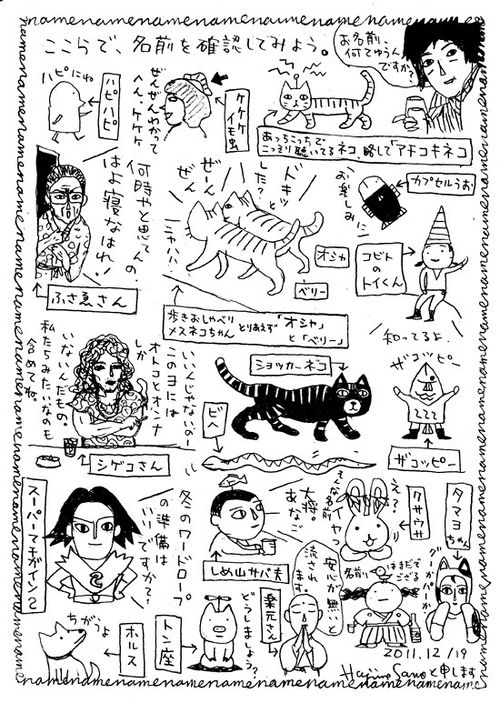 ここらで、名前を確認してみよう。
お名前、
何てゆうん
ですか?
ハピにゃ
ハピハピ
ぜんぜんわかって
へん、ケケケ
ケケケ
イモ虫
あっちこっちで
こっそり聴いてるネコ、略して「アチコキネコ」
何時やと思てんの
はよ寝なはれ!
ふさゑさん
ドキッと
した?
ぜーん
ぜん
ニャハハ
オシャ
ベリー
歩きおしゃべり
メスネコちゃん とりあえず「オシャ」
と「ベリー」
お楽しみに
カプセルうお
コビト
の
トイくん
知ってるよ
ザコッピー
ZZZ
ザコッピー
いいんじゃないの~
この世には
オトコとオンナ
しか
いないんだもの。
私たちみたいなのも
含めてね。
シゲコさん
ショッカーネコ
ビヘ
スーパーマチガイン2
冬のワードローブ
の準備は
いいですか?
大将。
あなご
しめ山サバ夫
え?
そんな名前
イヤ
クサウサ
タマヨちゃん
ちがうよ
ホルス
トン座
どうしましょう?
楽元さん
安心が無いと
流されます
名前
はまだで
ござる
2011.12/19
Hajime Sanoと申します